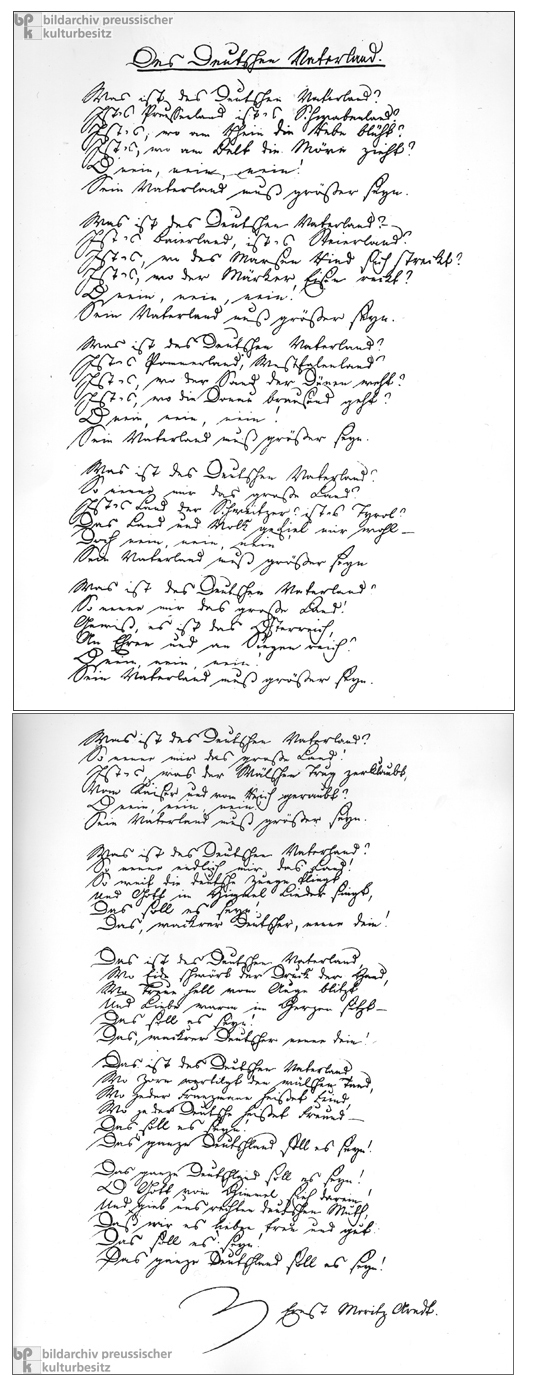 bpk bildarchiv preussischer
kulturbesitz
Des Deutschen Vaterland.
Was ist des Deutschen Vaterland?
Ist's Preussenland ist's Schwabenland?
Ist's, wo am Rhein die Rebe blüht?
Ist's, wo am Belt die Möve zieht?
O nein, nein, nein!
Sein Vaterland muß größer seyn.
Was ist des Deutschen Vaterland?
Ist's Baierland, ist's Steierland?
Ist's, wo des Marsen Rind sich streckt?
Ist's, wo der Märker Eisen reckt?
O nein, nein, nein!
Sein Vaterland muß größer seyn.
Was ist des Deutschen Vaterland?
Ist's Pommerland, Westfalenland?
Ist's, wo der Sand der Dünen weht?
Ist's, wo die Donau brausend geht?
O nein, nein, nein!
Sein Vaterland muß größer seyn.
Was ist des Deutschen Vaterland?
So nenne mir das große Land?
Ist's Land der Schweitzer? ist's Tyrol?
Das Land und Volk gefiel mir wohl—
Doch nein, nein, nein
Sein Vaterland muß größer seyn
Was ist des Deutschen Vaterland?
So nenne mir das große Land!
Gewiß, es ist das Österreich,
An Ehren und an Siegen reich?
O nein, nein, nein!
Sein Vaterland muß größer seyn.
Was ist des Deutschen Vaterland?
So nenne mir das große Land!
Ist's, was der Wälschen Trug zerklaubt,
Vom Kaiser und vom Reich geraubt?
O nein, nein, nein!
Sein Vaterland muß größer seyn.
Was ist des Deutschen Vaterland?
So nenne endlich mir, das Land!
So weit die deutsche Zunge klingt
Und Gott im Himmel Lieder singt,
Das soll es seyn!
Das, wackrer Deutscher, nenne dein!
Das ist des Deutschen Vaterland,
Wo Eide schwört der Druck der Hand,
Wo Treue hell vom Auge blitzt
Und Liebe warm im Herzen sitzt—
Das soll es seyn!
Das, wackrer Deutscher nenne dein!
Das ist des Deutschen Vaterland
Wo Zorn vertilgt den wälschen Tand,
Wo jeder Franzmann heißet Feind,
Wo jeder Deutsche heißet Freund—
Das soll es seyn!
Das ganze Deutschland soll es seyn!
Das ganze Deutschland soll es seyn!
O Gott vom Himmel sieh darein!
Und gieb uns rechten deutschen Muth,
Daß wir es lieben treu und gut.
Das soll es seyn!
Das ganze Deutschland soll es seyn!
Ernst Moritz Arndt.
bpk bildarchiv preussischer
kulturbesitz